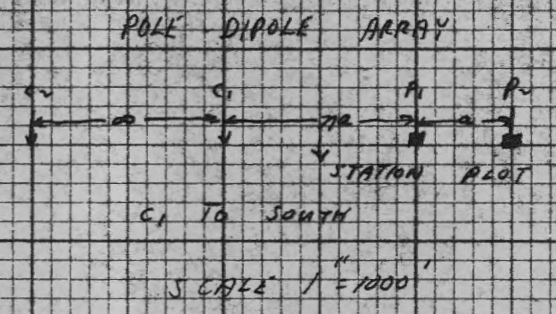 POLE DIPOLE ARRAY
C2 C1 P1 P2
∞ na a
STATION PLOT
C1 TO SOUTH
SCALE 1" = 1000'